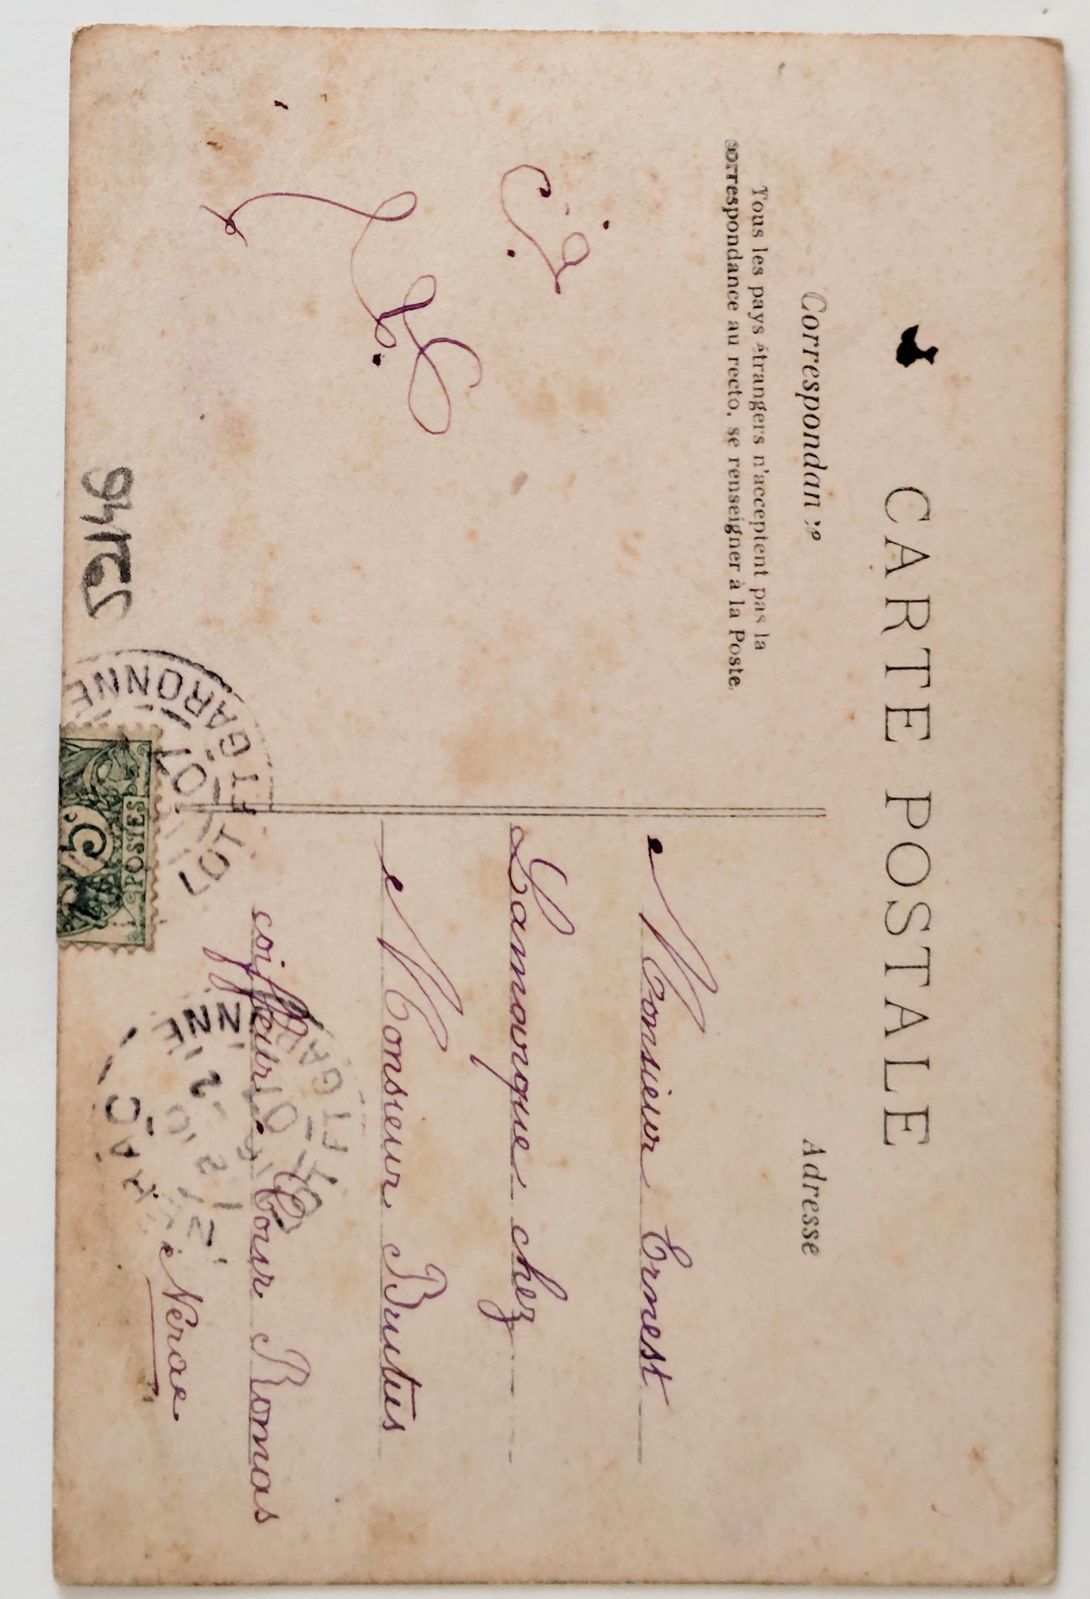 CARTE POSTALE
Correspondance
Tous les pays étrangers n'acceptent pas la
correspondance au recto, se renseigner à la Poste.
Adresse
Monsieur Ernest
Lamarque chez
Monsieur Brutus
coiffeur Cour Romas
Nérac
LOT ET GARONNE
07
5c
POSTES
LOT ET GAR NNE
07
RAC